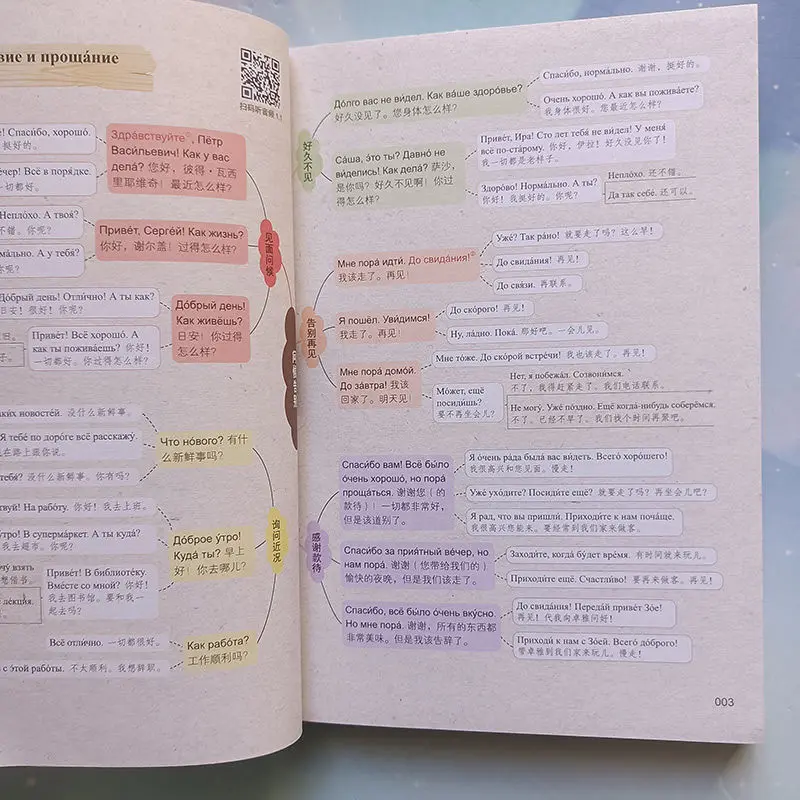 вие и проща́ние
扫码听音频 1.1
е! Спаси́бо, хорошо́.
挺好的。
Здра́вствуйте, Пётр
Васи́льевич! Как у вас
дела́? 您好，彼得·瓦西
里耶维奇！最近怎么样？
чер! Всё в поря́дке.
一切都好。
Непло́хо. А твоя́?
不错。你呢？
Приве́т, Серге́й! Как жизнь?
你好，谢尔盖！过得怎么样？
ма́льно. А у тебя́?
好。你呢？
见面问候
До́брый день! Отли́чно! А ты как?
日安！很好！你呢？
До́брый день!
Как живёшь?
日安！你过得
怎么样？
Приве́т! Всё хорошо́. А
как ты пожива́ешь? 你好！
一切都好。你过得怎么样？
аки́х новосте́й. 没什么新鲜事。
Я тебе́ по доро́ге всё расскажу́.
在路上跟你说。
Что но́вого? 有什
么新鲜事吗？
тебя́? 没什么新鲜事。你有吗？
твуй! На рабо́ту. 你好！我去上班。
у́тро! В суперма́ркет. А ты куда́?
我去超市。你呢？
До́брое у́тро!
Куда́ ты? 早上
好！你去哪儿？
询问近况
чу́ взять
想借书。
ле́кция.
Приве́т! В библиоте́ку.
Вме́сте со мной? 你好！
我去图书馆。要和我一
起去吗？
Всё отли́чно. 一切都很好。
Как рабо́та?
工作顺利吗？
с э́той рабо́ты. 不太顺利。我想辞职。
好久不见
До́лго вас не ви́дел. Как ва́ше здоро́вье?
好久没见了。您身体怎么样？
Спаси́бо, норма́льно. 谢谢，挺好的。
О́чень хорошо́. А как вы пожива́ете?
我身体很好。您最近怎么样？
Са́ша, э́то ты? Давно́ не
ви́делись! Как дела́? 萨沙，
是你吗？好久不见啊！你过
得怎么样？
Приве́т, И́ра! Сто лет тебя́ не ви́дел! У меня́
всё по-ста́рому. 你好，伊拉！好久没见你了！
我一切都是老样子。
Здоро́во! Норма́льно. А ты?
你好！我挺好的。你呢？
Непло́хо. 还不错。
Да так себе́. 还可以。
告别再见
Мне пора́ идти́. До свида́ния!
我该走了。再见！
Уже́? Так ра́но! 就要走了吗？这么早！
До свида́ния! 再见！
До свя́зи. 再联系。
Я пошёл. Уви́димся!
我走了。再见！
До ско́рого! 再见！
Ну, ла́дно. Пока́. 那好吧。一会儿见。
Мне пора́ домо́й.
До за́втра! 我该
回家了。明天见！
Мне то́же. До ско́рой встре́чи! 我也该走了。再见！
Мо́жет, ещё
посиди́шь?
要不再坐会儿？
Нет, я побежа́л. Созвони́мся.
不了，我得赶紧走了。我们电话联系。
Не могу́. Уже́ по́здно. Ещё когда́-нибудь соберёмся.
不了。已经不早了。我们找个时间再聚吧。
感谢款待
Спаси́бо вам! Всё бы́ло
о́чень хорошо́, но пора́
проща́ться. 谢谢您（的
款待）！一切都非常好，
但是该道别了。
Я о́чень ра́да была́ вас ви́деть. Всего́ хоро́шего!
我很高兴和您见面。慢走！
Уже́ ухо́дите? Посиди́те ещё? 就要走了吗？再坐会儿吧？
Я рад, что вы пришли́. Приходи́те к нам поча́ще.
我很高兴您能来。要经常到我们家来做客。
Спаси́бо за прия́тный ве́чер, но
нам пора́. 谢谢（您带给我们的）
愉快的夜晚，但是我们该走了。
Заходи́те, когда́ бу́дет вре́мя. 有时间就来玩儿。
Приходи́те ещё. Счастли́во! 要再来做客。再见！
Спаси́бо, всё бы́ло о́чень вку́сно.
Но мне пора́. 谢谢，所有的东西都
非常美味。但是我该告辞了。
До свида́ния! Переда́й приве́т Зо́е!
再见！代我向卓雅问好！
Приходи́ к нам с Зо́ей. Всего́ до́брого!
带卓雅到我们家来玩儿。慢走！
003